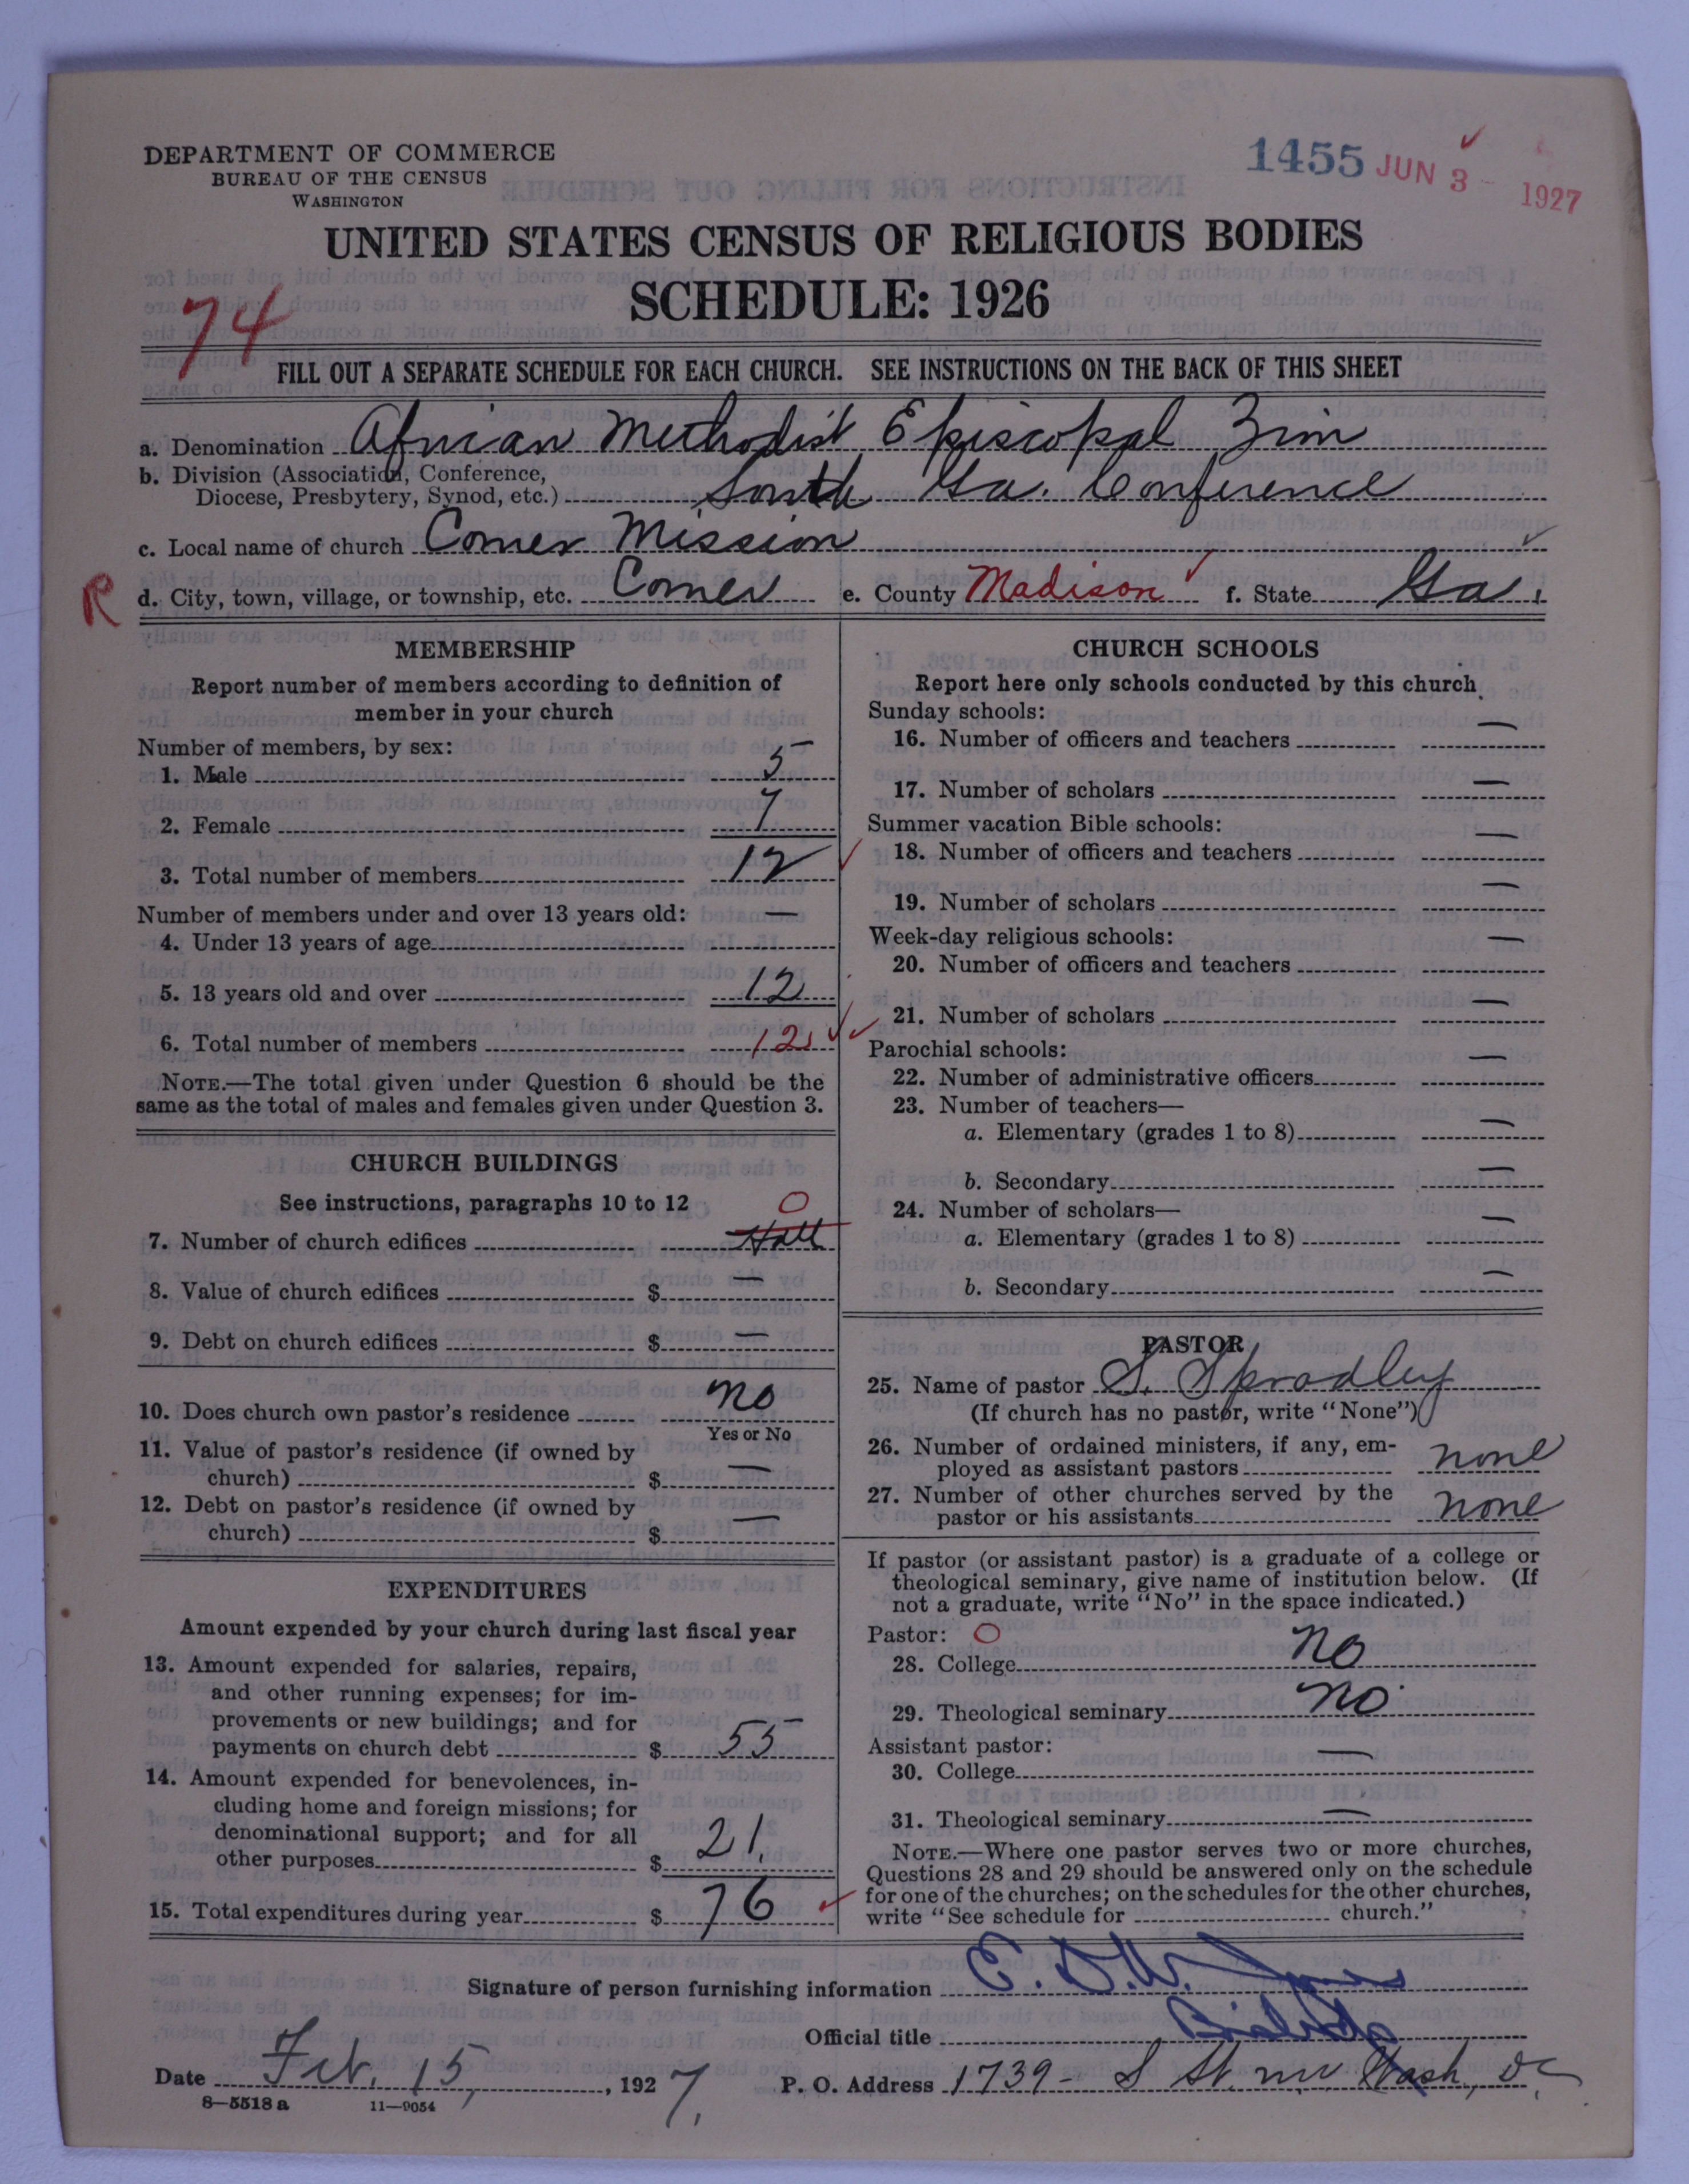 DEPARTMENT OF COMMERCE
BUREAU OF THE CENSUS
WASHINGTON
1455 JUN 3 - 1927
UNITED STATES CENSUS OF RELIGIOUS BODIES
SCHEDULE: 1926
74
FILL OUT A SEPARATE SCHEDULE FOR EACH CHURCH. SEE INSTRUCTIONS ON THE BACK OF THIS SHEET
a. Denomination African Methodist Episcopal Zion
b. Division (Association, Conference,
Diocese, Presbytery, Synod, etc.) South Ga. Conference
c. Local name of church Comer Mission
R d. City, town, village, or township, etc. Comer e. County Madison f. State Ga.
MEMBERSHIP
Report number of members according to definition of
member in your church
Number of members, by sex:
1. Male 5
2. Female 7
3. Total number of members 12
Number of members under and over 13 years old:
4. Under 13 years of age —
5. 13 years old and over 12
6. Total number of members 12
NOTE.—The total given under Question 6 should be the
same as the total of males and females given under Question 3.
CHURCH BUILDINGS
See instructions, paragraphs 10 to 12
7. Number of church edifices Hall 0
8. Value of church edifices $ —
9. Debt on church edifices $ —
10. Does church own pastor's residence no
Yes or No
11. Value of pastor's residence (if owned by
church) $ —
12. Debt on pastor's residence (if owned by
church) $ —
EXPENDITURES
Amount expended by your church during last fiscal year
13. Amount expended for salaries, repairs,
and other running expenses; for im-
provements or new buildings; and for
payments on church debt $ 55
14. Amount expended for benevolences, in-
cluding home and foreign missions; for
denominational support; and for all
other purposes $ 21.
15. Total expenditures during year $ 76
CHURCH SCHOOLS
Report here only schools conducted by this church
Sunday schools:
16. Number of officers and teachers —
17. Number of scholars —
Summer vacation Bible schools:
18. Number of officers and teachers —
19. Number of scholars —
Week-day religious schools:
20. Number of officers and teachers —
21. Number of scholars —
Parochial schools:
22. Number of administrative officers —
23. Number of teachers—
a. Elementary (grades 1 to 8) —
b. Secondary —
24. Number of scholars—
a. Elementary (grades 1 to 8) —
b. Secondary —
PASTOR
25. Name of pastor S. Spradley
(If church has no pastor, write "None")
26. Number of ordained ministers, if any, em-
ployed as assistant pastors none
27. Number of other churches served by the
pastor or his assistants none
If pastor (or assistant pastor) is a graduate of a college or
theological seminary, give name of institution below. (If
not a graduate, write "No" in the space indicated.)
Pastor: 0
28. College no
29. Theological seminary no
Assistant pastor:
30. College —
31. Theological seminary —
NOTE.—Where one pastor serves two or more churches,
Questions 28 and 29 should be answered only on the schedule
for one of the churches; on the schedules for the other churches,
write "See schedule for church."
Signature of person furnishing information E. D. W. Jones
Official title Bishop
Date Feb. 15, 1927. P. O. Address 1739 - S St. nw Wash, DC
8—5518 a 11—9054